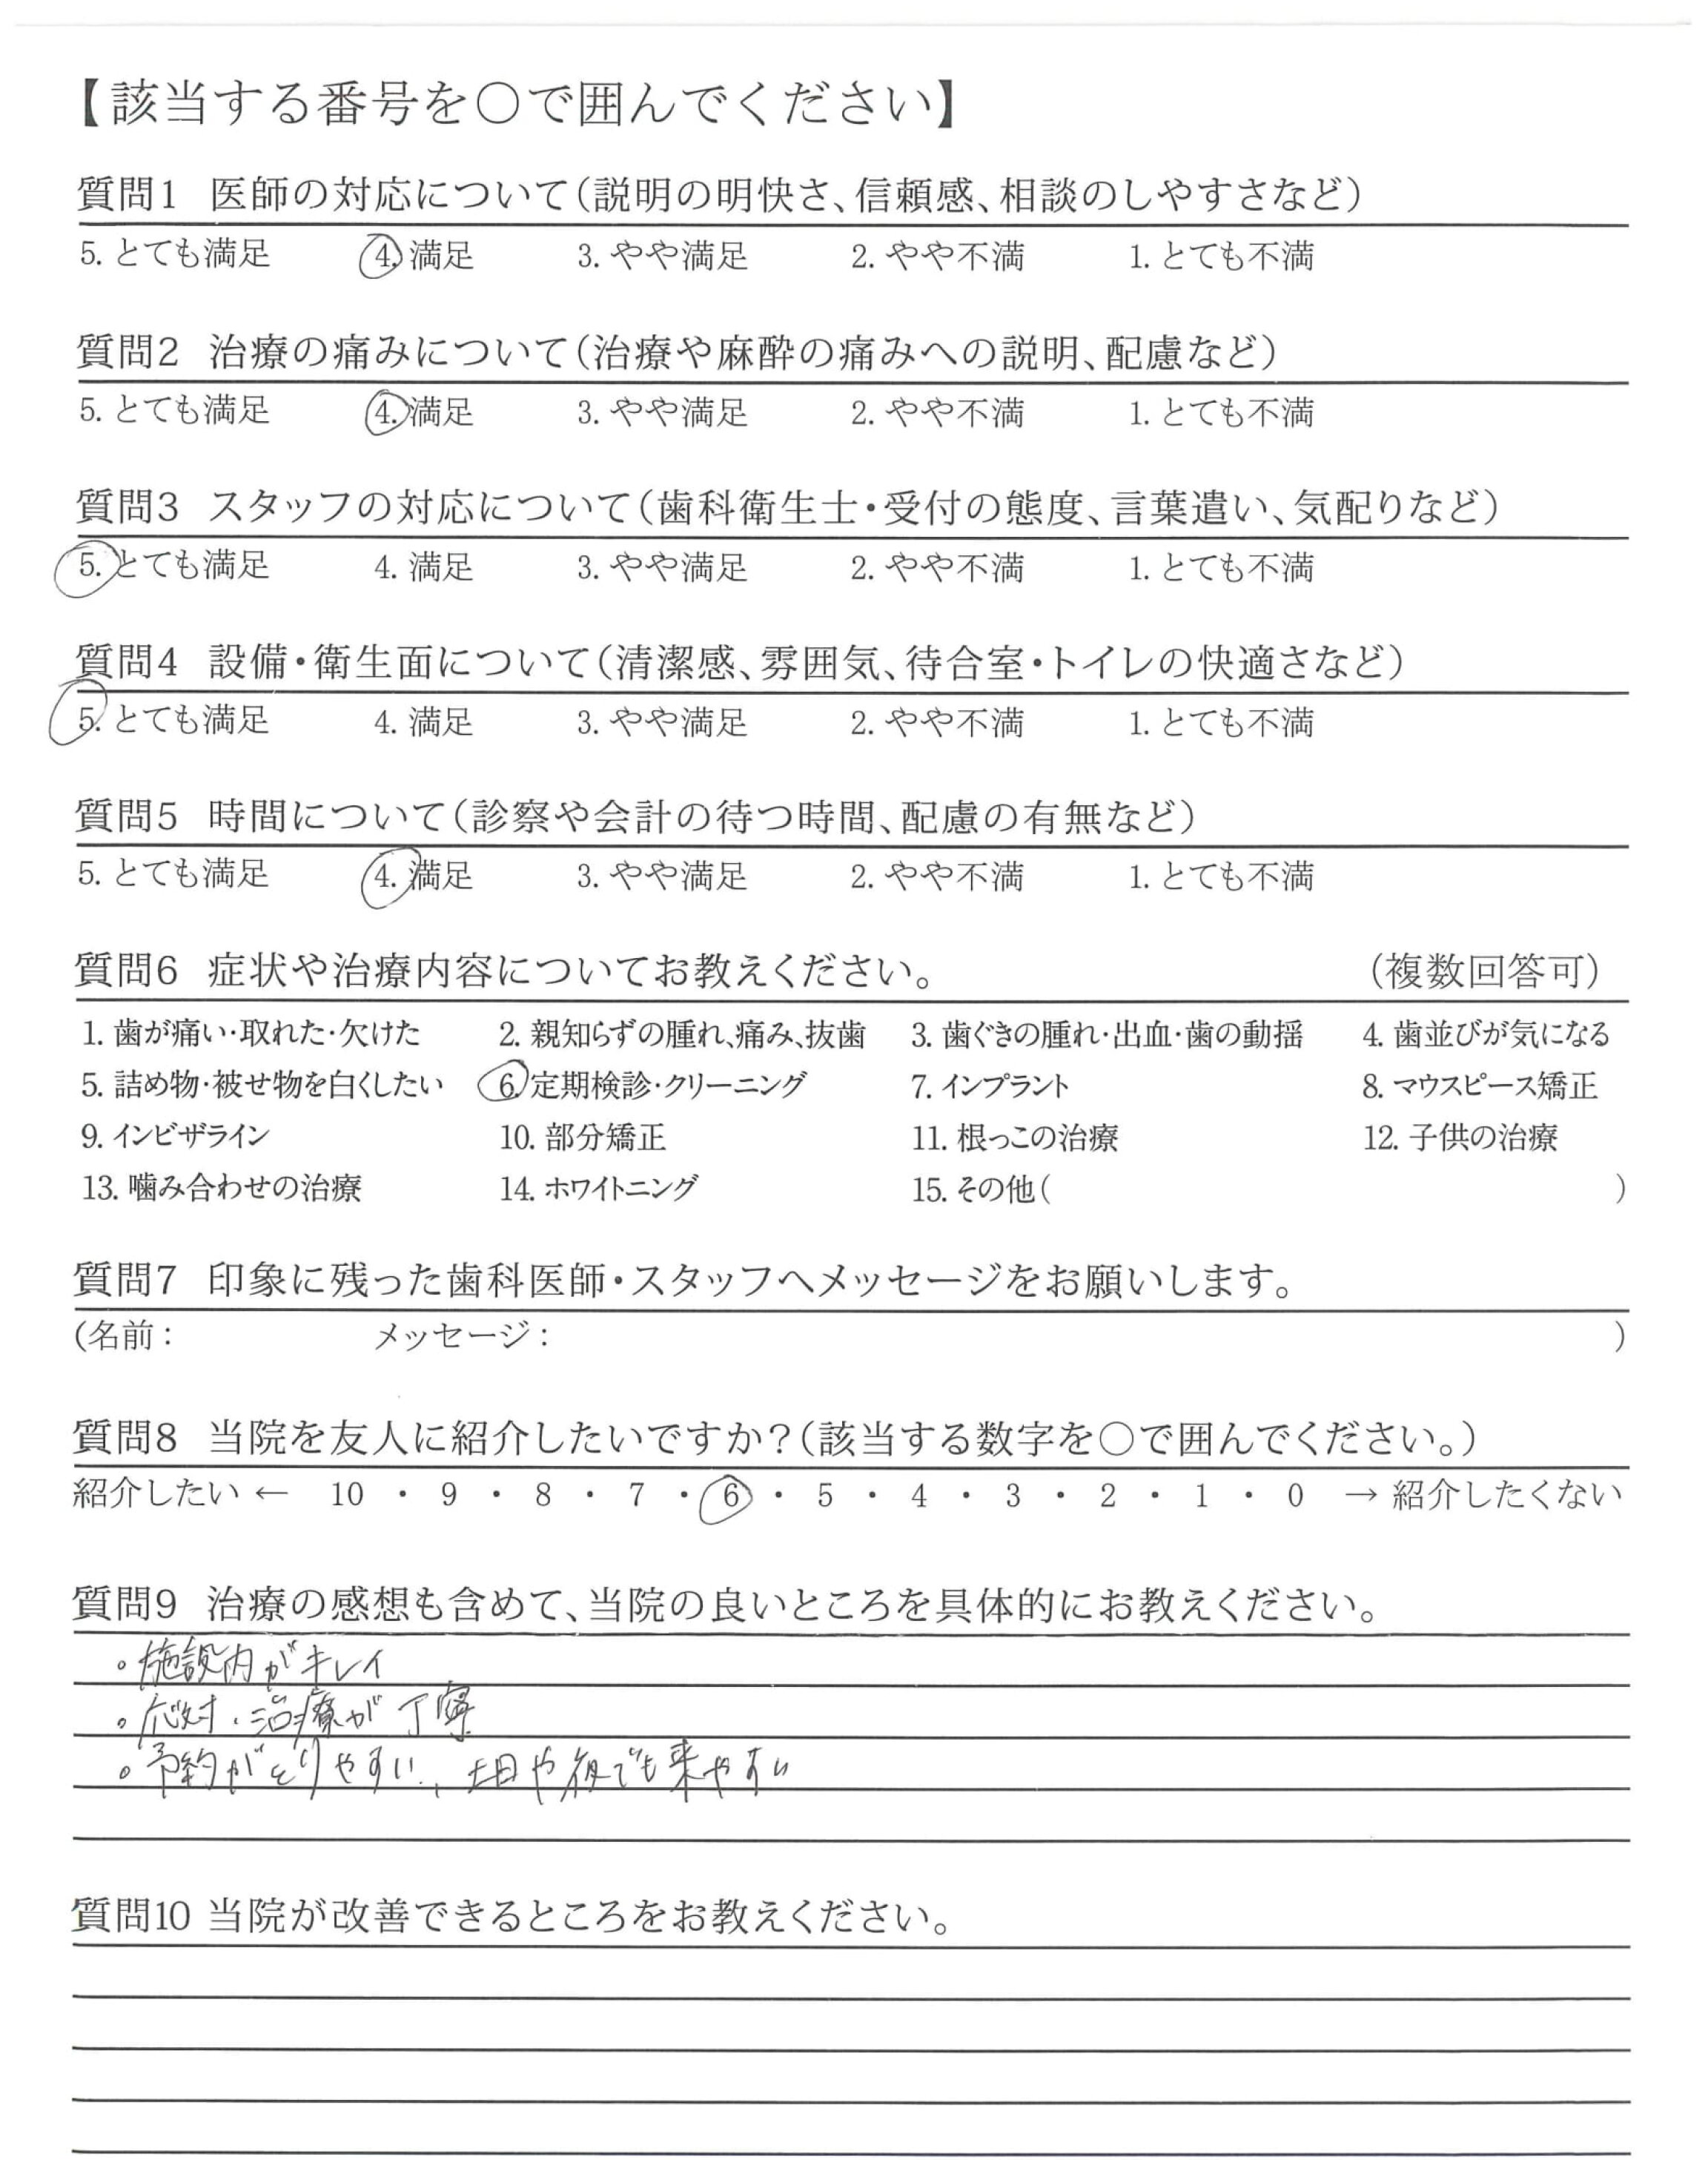 【該当する番号を○で囲んでください】
質問1 医師の対応について(説明の明快さ、信頼感、相談のしやすさなど)
5. とても満足 4. 満足 3. やや満足 2. やや不満 1. とても不満
質問2 治療の痛みについて(治療や麻酔の痛みへの説明、配慮など)
5. とても満足 4. 満足 3. やや満足 2. やや不満 1. とても不満
質問3 スタッフの対応について(歯科衛生士・受付の態度、言葉遣い、気配りなど)
5. とても満足 4. 満足 3. やや満足 2. やや不満 1. とても不満
質問4 設備・衛生面について(清潔感、雰囲気、待合室・トイレの快適さなど)
5. とても満足 4. 満足 3. やや満足 2. やや不満 1. とても不満
質問5 時間について(診察や会計の待つ時間、配慮の有無など)
5. とても満足 4. 満足 3. やや満足 2. やや不満 1. とても不満
質問6 症状や治療内容についてお教えください。 (複数回答可)
1. 歯が痛い・取れた・欠けた 2. 親知らずの腫れ、痛み、抜歯 3. 歯ぐきの腫れ・出血・歯の動揺 4. 歯並びが気になる
5. 詰め物・被せ物を白くしたい 6. 定期検診・クリーニング 7. インプラント 8. マウスピース矯正
9. インビザライン 10. 部分矯正 11. 根っこの治療 12. 子供の治療
13. 噛み合わせの治療 14. ホワイトニング 15. その他( )
質問7 印象に残った歯科医師・スタッフへメッセージをお願いします。
(名前: メッセージ: )
質問8 当院を友人に紹介したいですか?(該当する数字を○で囲んでください。)
紹介したい ← 10 ・ 9 ・ 8 ・ 7 ・ 6 ・ 5 ・ 4 ・ 3 ・ 2 ・ 1 ・ 0 → 紹介したくない
質問9 治療の感想も含めて、当院の良いところを具体的にお教えください。
。施設内がキレイ
。応対・治療が丁寧
。予約がとりやすい、土日や夜でも来やすい
質問10 当院が改善できるところをお教えください。